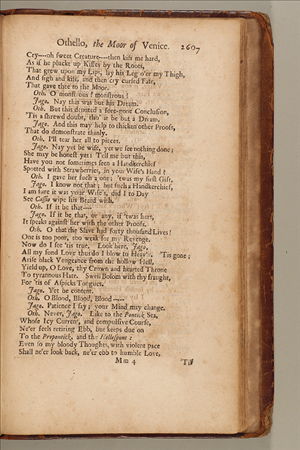 Othello, the Moor of Venice. 2607
Cry----oh sweet Creature----then kiss me hard,
As if he pluckt up Kisses by the Roots,
That grew upon my Lips, lay his Leg o'er my Thigh,
And sigh and kiss, and then cry cursed Fate,
That gave thee to the Moor.
Oth. O monstrous! monstrous!
Jago. Nay this was but his Dream.
Oth. But this denoted a fore-gone Conclusion,
'Tis a shrewd doubt, tho' it be but a Dream.
Jago. And this may help to thicken other Proofs,
That do demonstrate thinly.
Oth. I'll tear her all to pieces.
Jago. Nay yet be wise, yet we see nothing done;
She may be honest yet: Tell me but this,
Have you not sometimes seen a Handkerchief
Spotted with Strawberries, in your Wife's Hand?
Oth. I gave her such a one; 'twas my first Gift.
Jago. I know not that; but such a Handkerchief,
I am sure it was your Wife's, did I to Day
See Cassio wipe his Beard with.
Oth. If it be that----
Jago. If it be that, or any, if 'twas hers,
It speaks against her with the other Proofs.
Oth. O that the Slave had forty thousand Lives!
One is too poor, too weak for my Revenge.
Now do I see 'tis true. Look here, Jago,
All my fond Love thus do I blow to Heav'n. 'Tis gone;
Arise black Vengeance from the hollow Hell,
Yield up, O Love, thy Crown and hearted Throne
To tyrannous Hate. Swell Bosom with thy fraught,
For 'tis of Aspicks Tongues.
Jago. Yet be content.
Oth. O Blood, Blood, Blood----
Jago. Patience I say; your Mind may change.
Oth. Never, Jago. Like to the Pontick Sea,
Whose Icy Current, and compulsive Course,
Ne'er feels retiring Ebb, but keeps due on
To the Propontick, and the Hellespont:
Even so my bloody Thoughts, with violent pace
Shall ne'er look back, ne'er ebb to humble Love,
M m 4